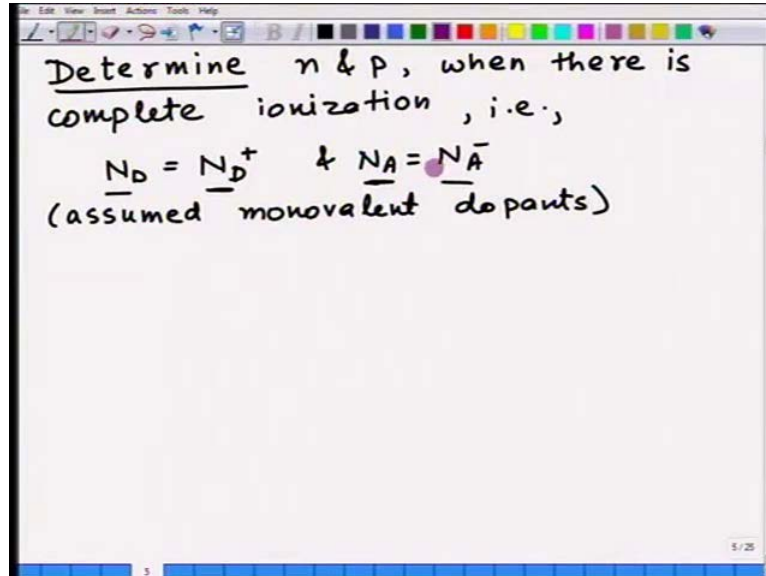 File Edit View Insert Actions Tools Help
Determine n & p, when there is
complete ionization, i.e.,
N_D = N_D^+ & N_A = N_A^-
(assumed monovalent dopants)
5/25
5